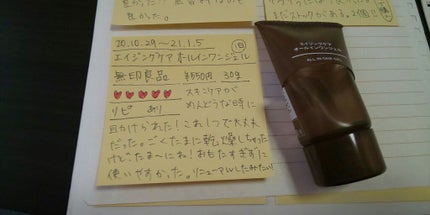 20.10.29〜21.1.5
エイジングケア オールインワンジェル
無印良品 ¥550円 30g
リピ あり
スキンケアが
めんどうな時に
助けられた!これ1つで大丈夫
だった。ごくたまに乾燥しちゃった
けど、たま〜にね!おもたすぎずに
使いやすかった。リニューアルしたみたい!
まだストックがある。2個!!
エイジングケア
オールインワンジェル
ALL IN ONE GEL